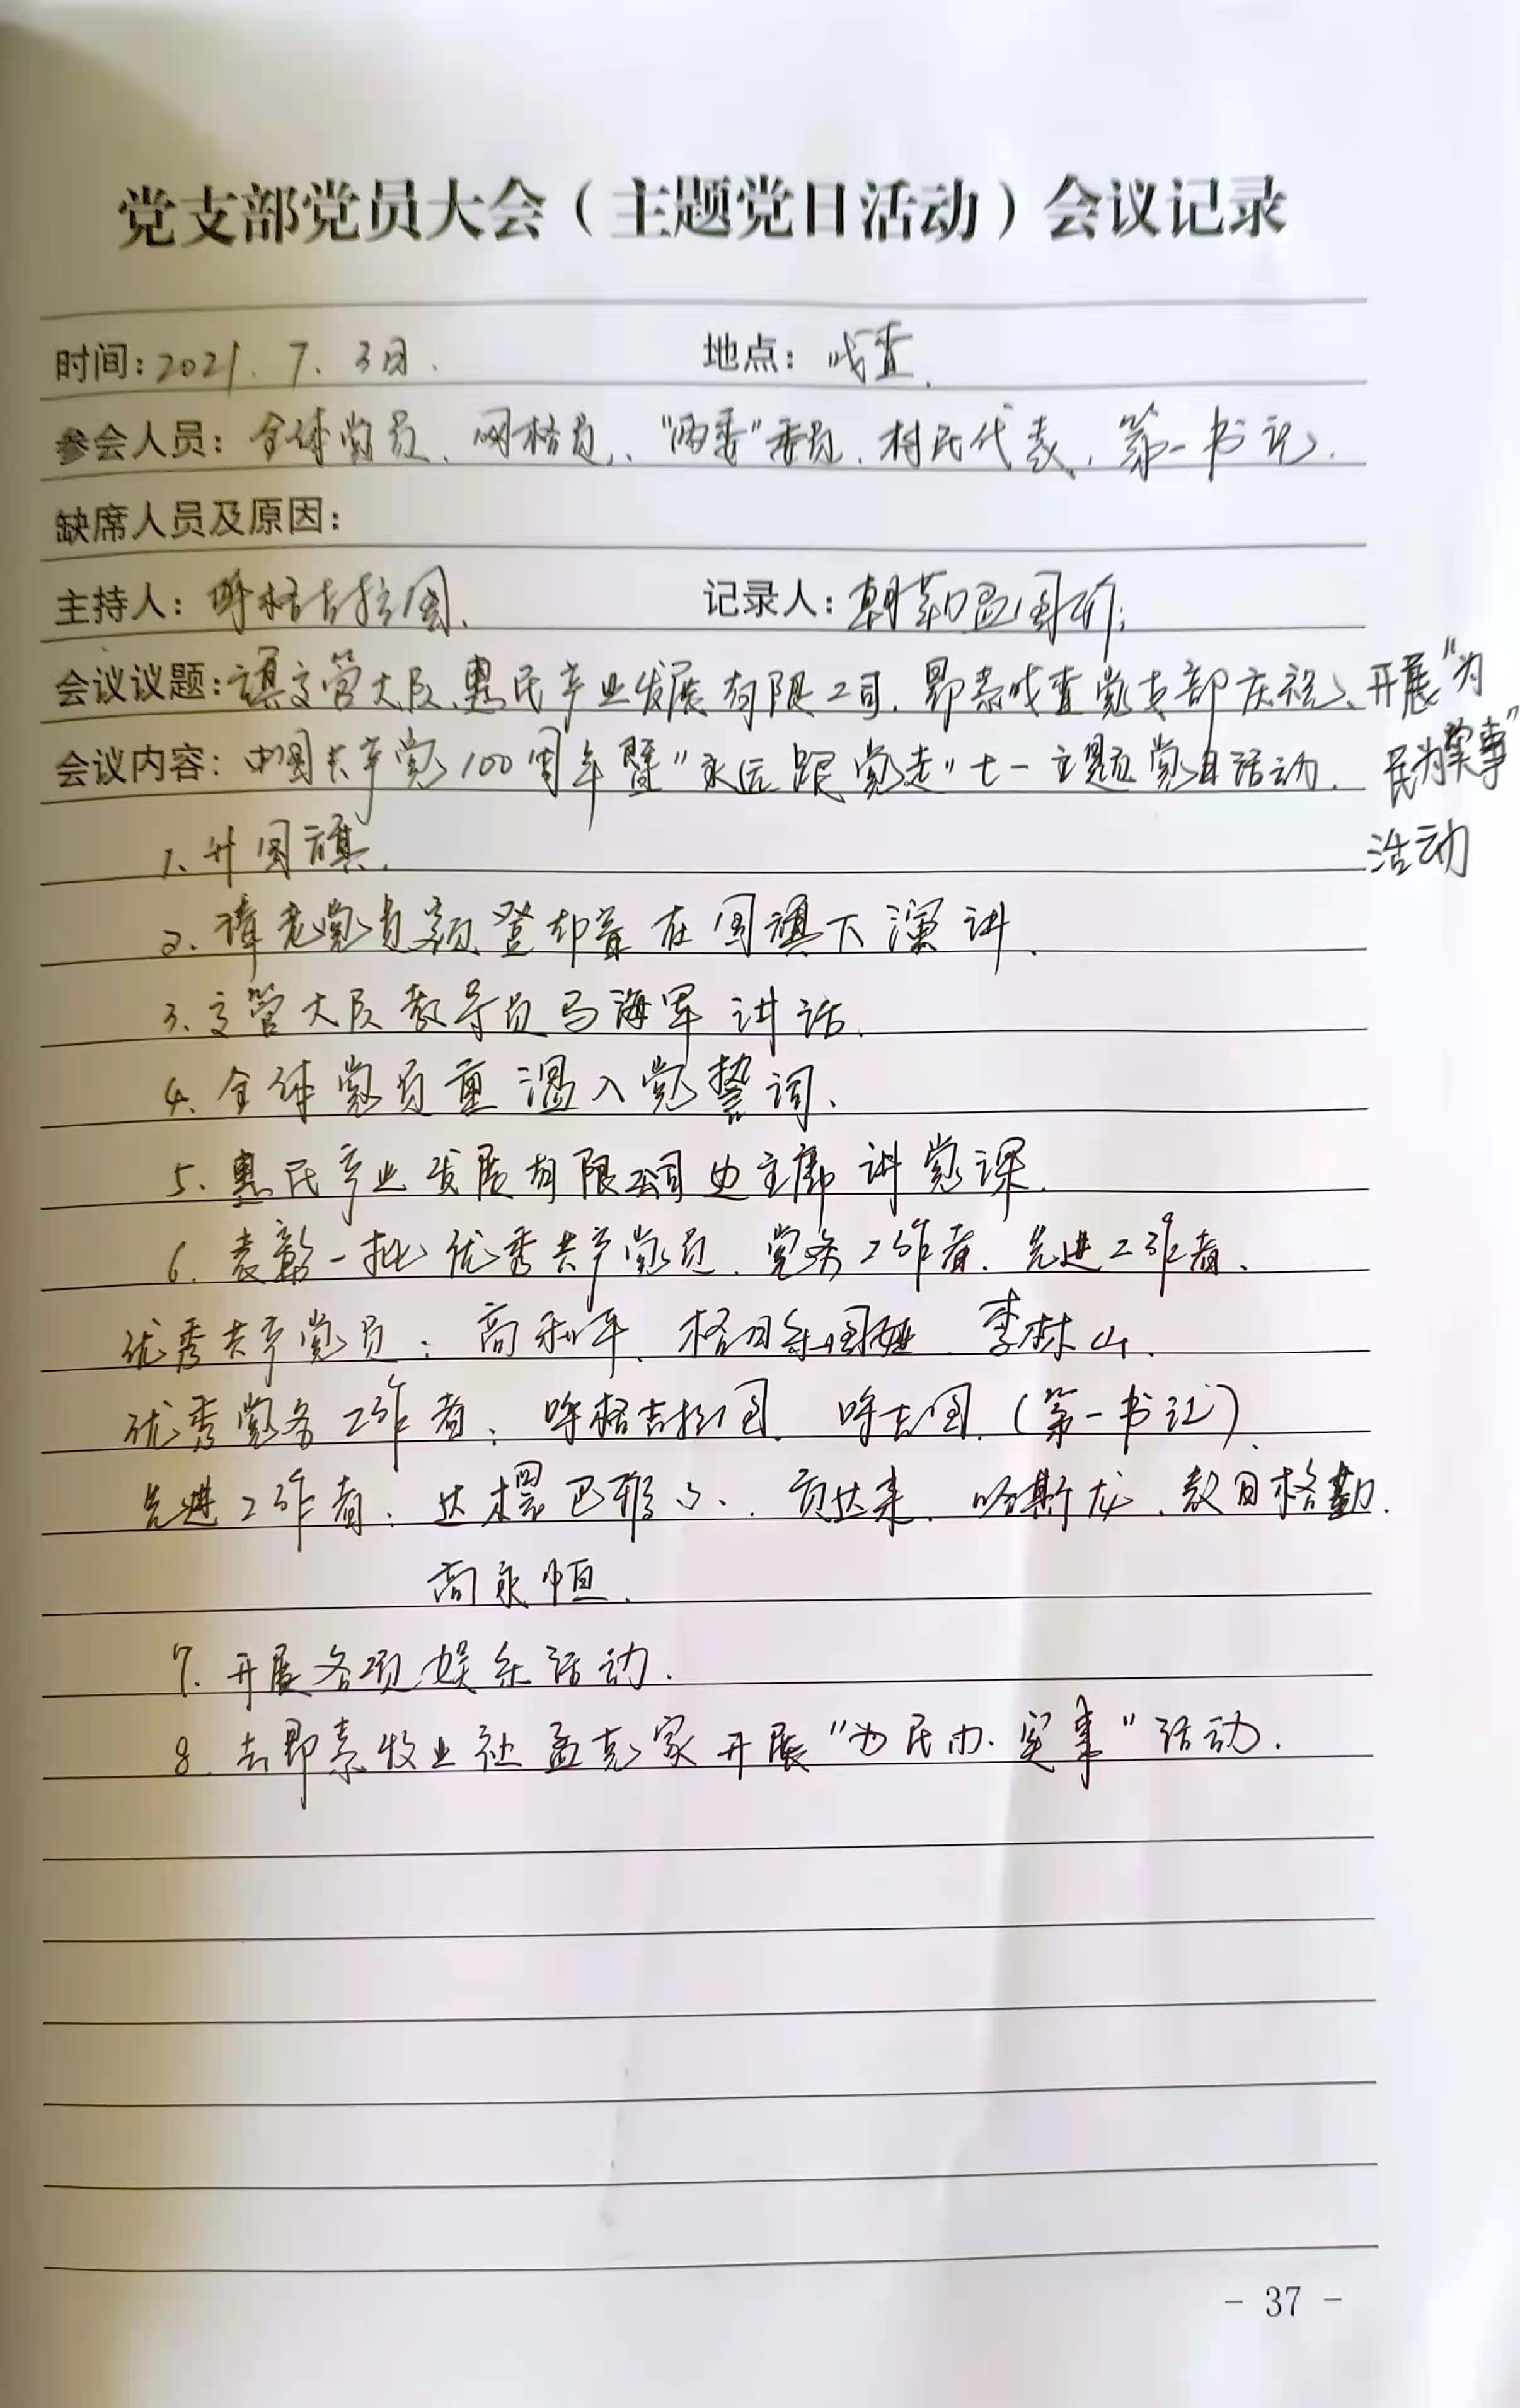 党支部党员大会（主题党日活动）会议记录
时间：2021.7.3日. 地点：嘎查.
参会人员：全体党员、网格员、“两委”委员、村民代表、第一书记.
缺席人员及原因：
主持人：呼格吉拉图. 记录人：朝革
会议议题：旗交管大队、惠民产业发展有限公司、即素嘎查党支部庆祝、开展“为
会议内容：中国共产党100周年暨“永远跟党走”七一主题党日活动. 民为实事”
活动
1、升国旗.
2、请老党员额登却音在国旗下演讲.
3、交管大队教导员马海军讲话.
4、全体党员重温入党誓词、
5、惠民产业发展有限公司史主席讲党课.
6、表彰一批优秀共产党员、党务工作者、先进工作者、
优秀共产党员：高利平、格日乐图娅、李林山.
优秀党务工作者：呼格吉拉图、呼吉图.（第一书记）.
先进工作者：达楞巴雅尔、贡达来、哈斯龙、敖日格勤.
高永恒.
7、开展各项娱乐活动.
8、去即素牧业社孟克家开展“为民办实事”活动.
- 37 -